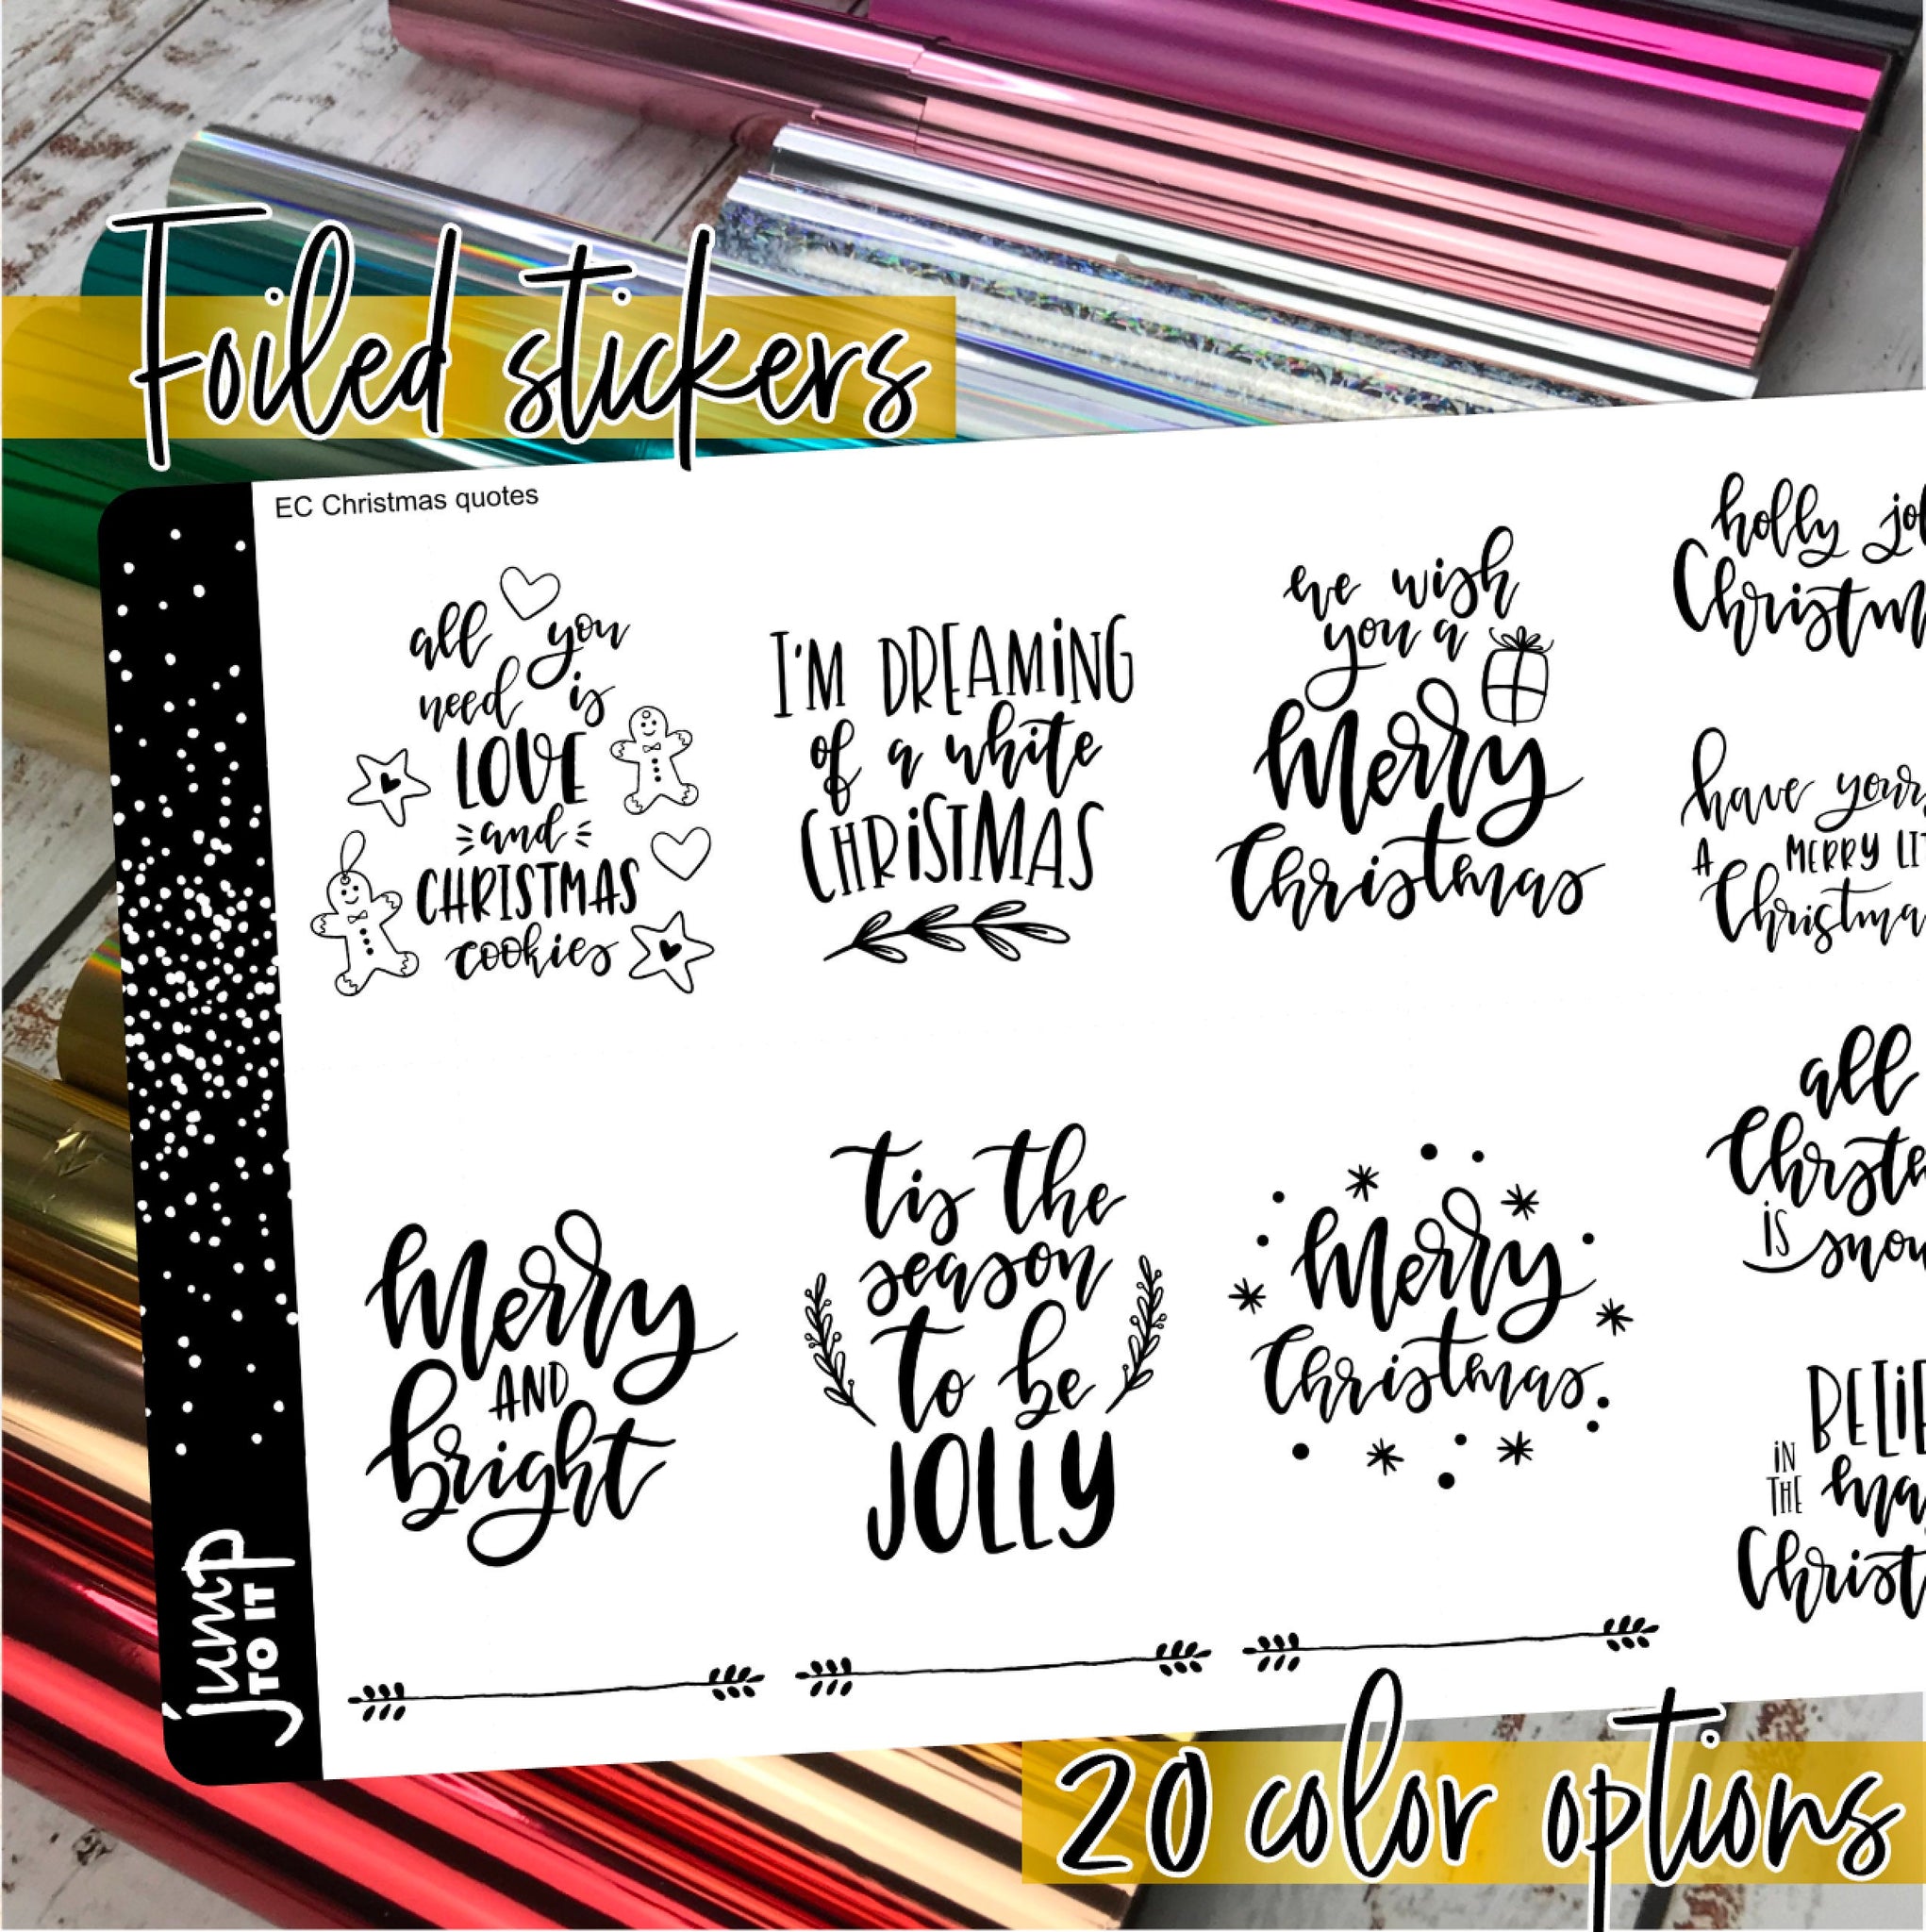 Foiled stickers
EC Christmas quotes
all you
need is
LOVE
and
CHRISTMAS
cookies
I'M DREAMING
of a white
CHRISTMAS
we wish
you a
Merry
Christmas
holly jol
Christm
have your
A MERRY LIT
Christma
Merry
AND
bright
tis the
season
to be
JOLLY
Merry
Christmas
all
Chrste
is snow
BELIE
IN
THE ma
Christ
jump
TO IT
20 color options